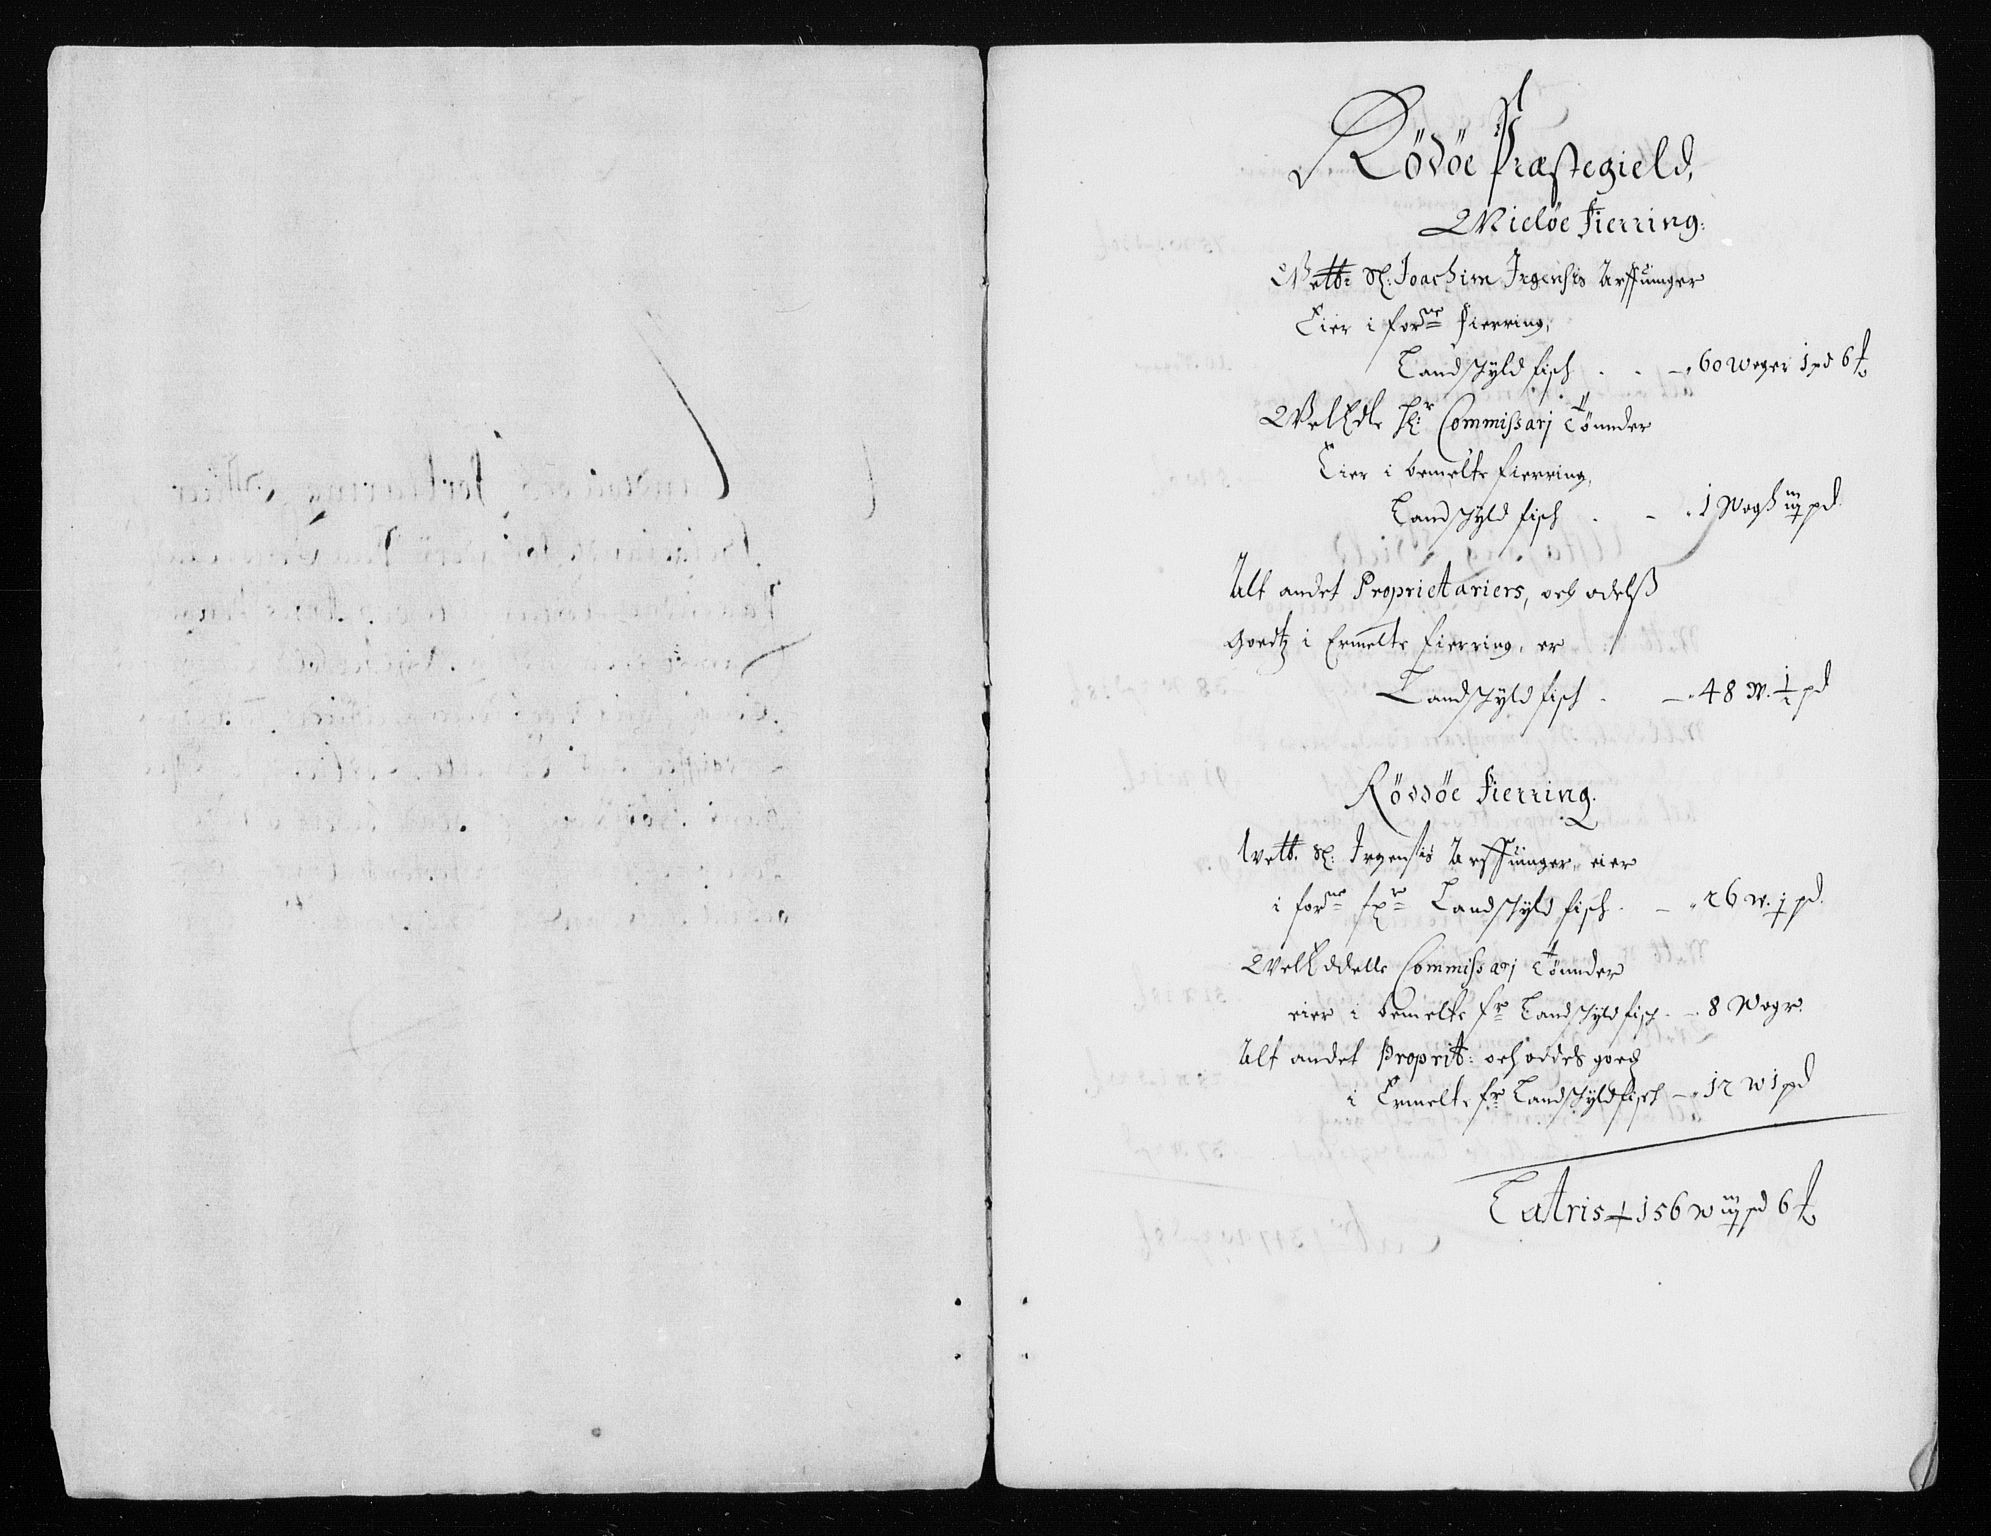 Rödöe Præstegield,
Mielöe Fierring:
Wett: Sl: Joachim Irgenses Arffuinger
Eier i forne fierring,
Landschyld fisch . . — 60 Woger 1 pd 6 ℔
WelEdle Hr: Commissarj Tönnder
Eier i bemelte fierring,
Landschyld fisch . — . 1 Wogh iij pd
Alt andet Proprietariers, och odelß
Goedtz i Ermelte fierring, er
Landschyld fisch . — . 48 W. ½ pd
Rödöe Fierring.
Wett. Sl: Irgenses Arffuinger, eier
i forne fr Landschyld fisch . — . 26 W. j pd.
WelEddelle Commissarj Tönnder
eier i bemelte fr Landschyld fisch . — . 8 Wogr.
Alt andet Proprit: och oddels goeds
i Ermelte fr Landschyldfisch — . 12 W 1 pd
Latris 156 W iij pd 6 ℔